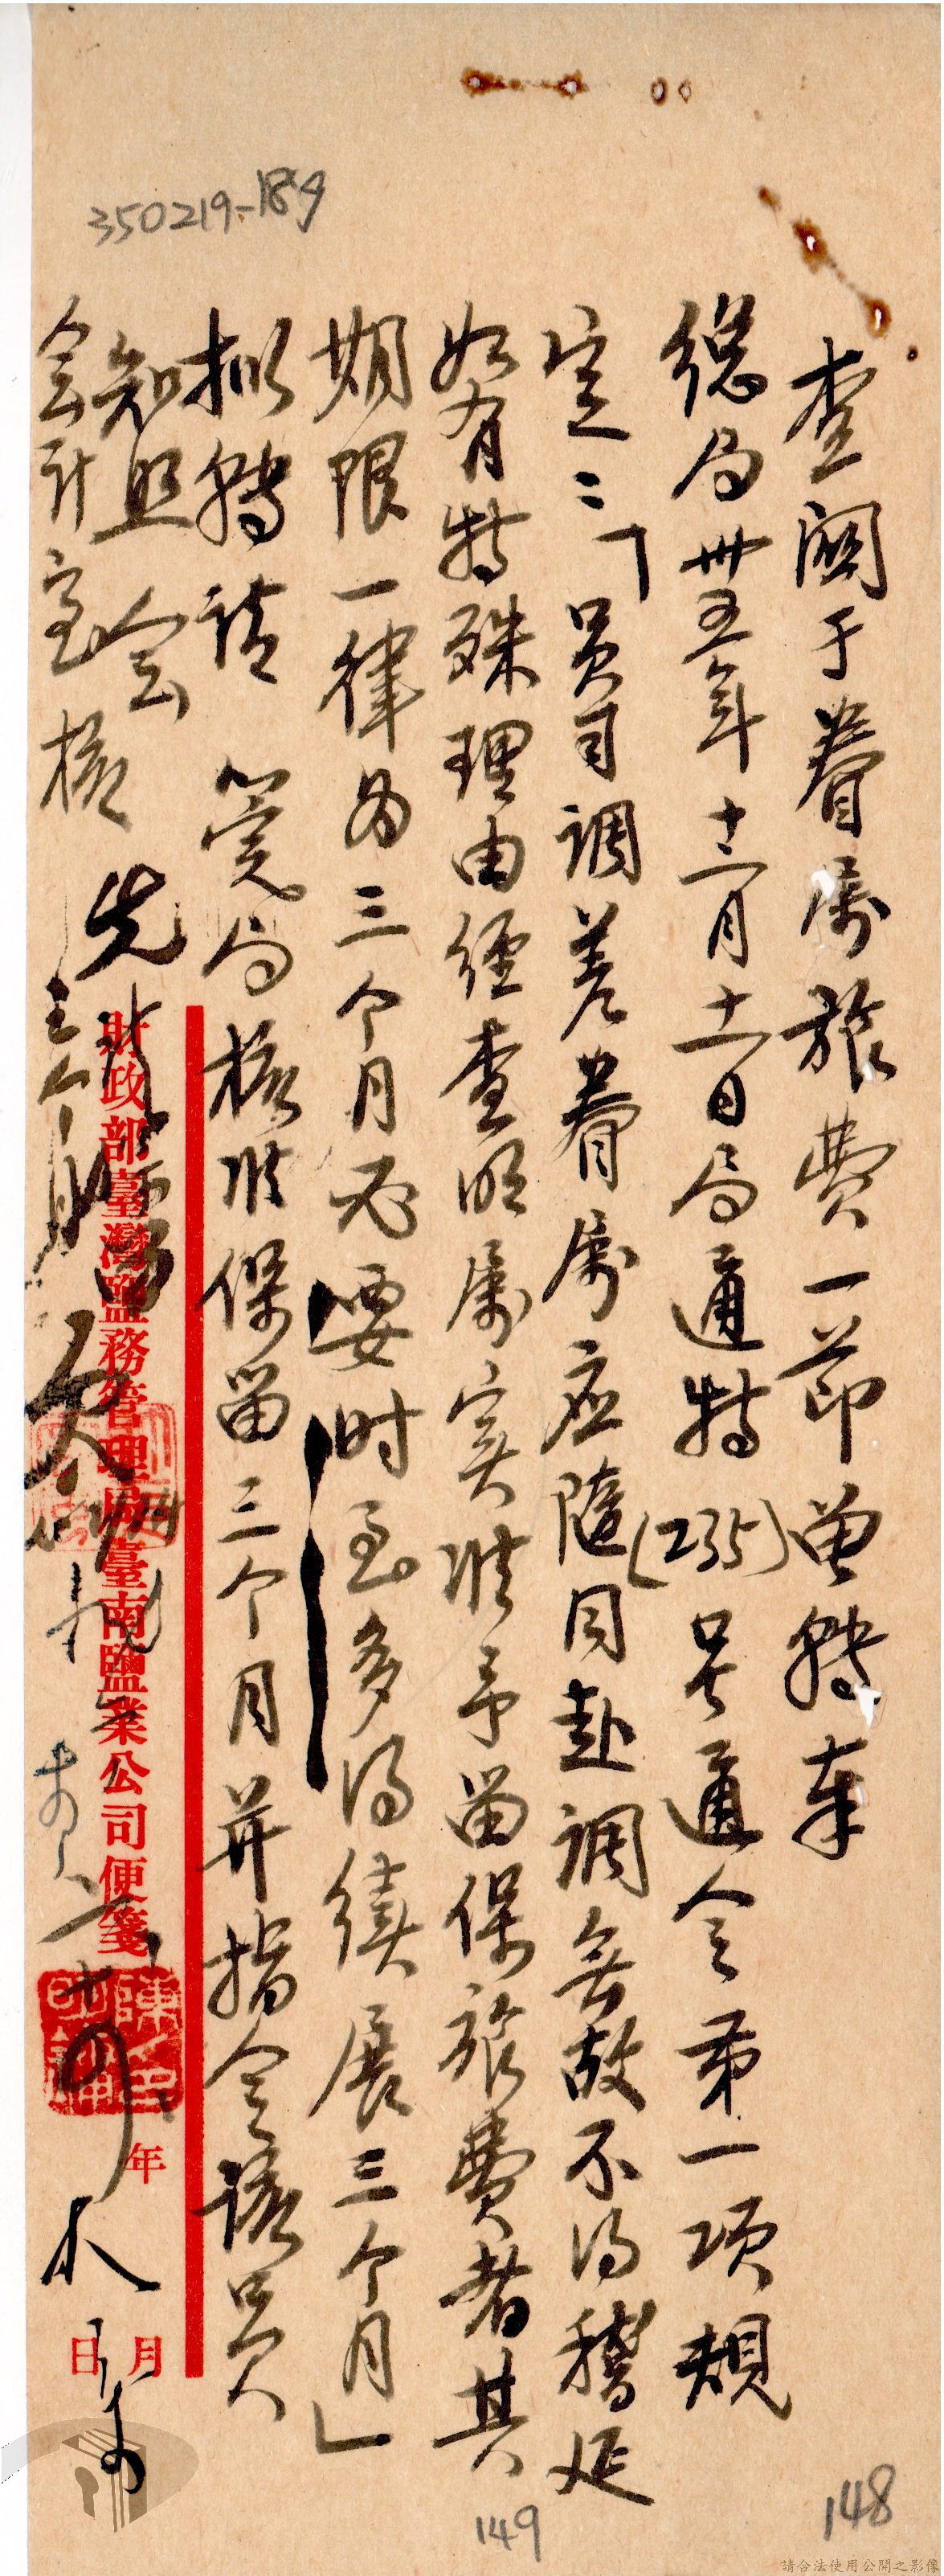 350219-189
查関于眷属旅費一節曾轉奉
總局卅五年十二月十一日局通特(235)号通令第一項規
定：「員司調差眷属应隨同赴調無故不得稽延
如有特殊理由經查明属实准予留保旅費者其
期限一律为三个月必要时至多得續展三个月」
拟轉請 筦局核准保留三个月并指令該員
知照 会
会計室核 先
財政部臺灣鹽務管理局臺南鹽業公司便箋
年 月 日
148
149
請合法使用公開之影像